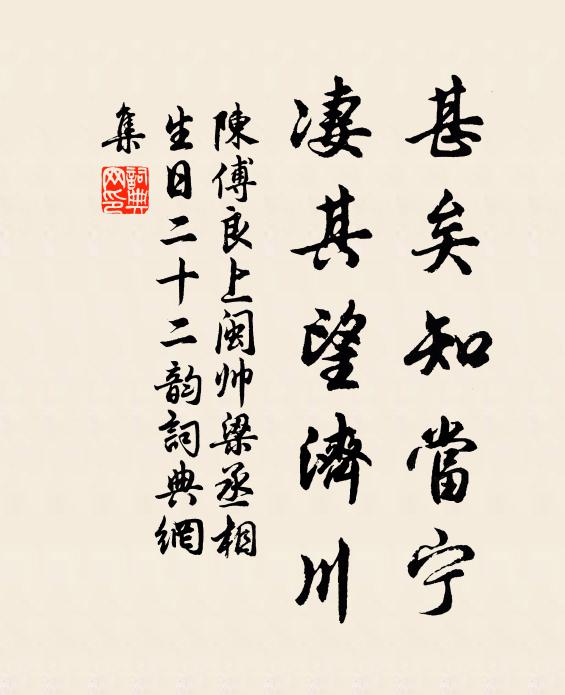 甚矣知當宁
凄其望濟川
陳傅良上閩帅梁丞相
生日二十二韵詞典網
集
詞典網印